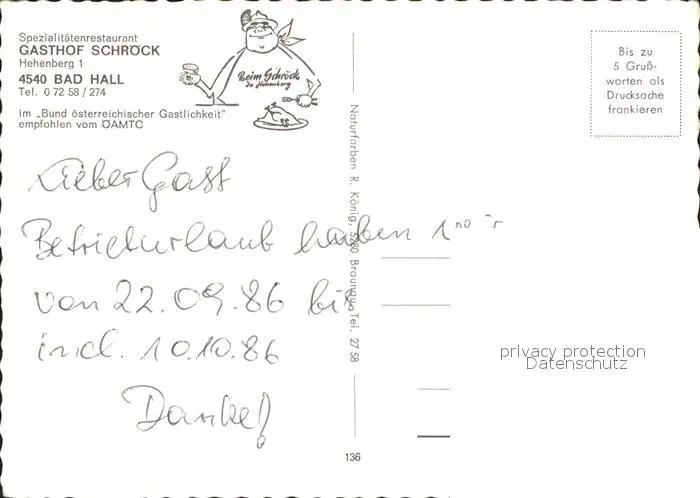 Spezialitätenrestaurant
GASTHOF SCHRÖCK
Hehenberg 1
4540 BAD HALL
Tel. 0 72 58 / 274
Im „Bund österreichischer Gastlichkeit"
empfohlen vom ÖAMTC
Beim Schröck
In Hehenberg
Bis zu
5 Gruß-
worten als
Drucksache
frankieren
Lieber Gast
Betriebsurlaub haben
von 22.09.86 bis
incl. 10.10.86
Danke!
Naturfarben R. König, 5280 Braunau, Tel. 27 58
136
privacy protection
Datenschutz